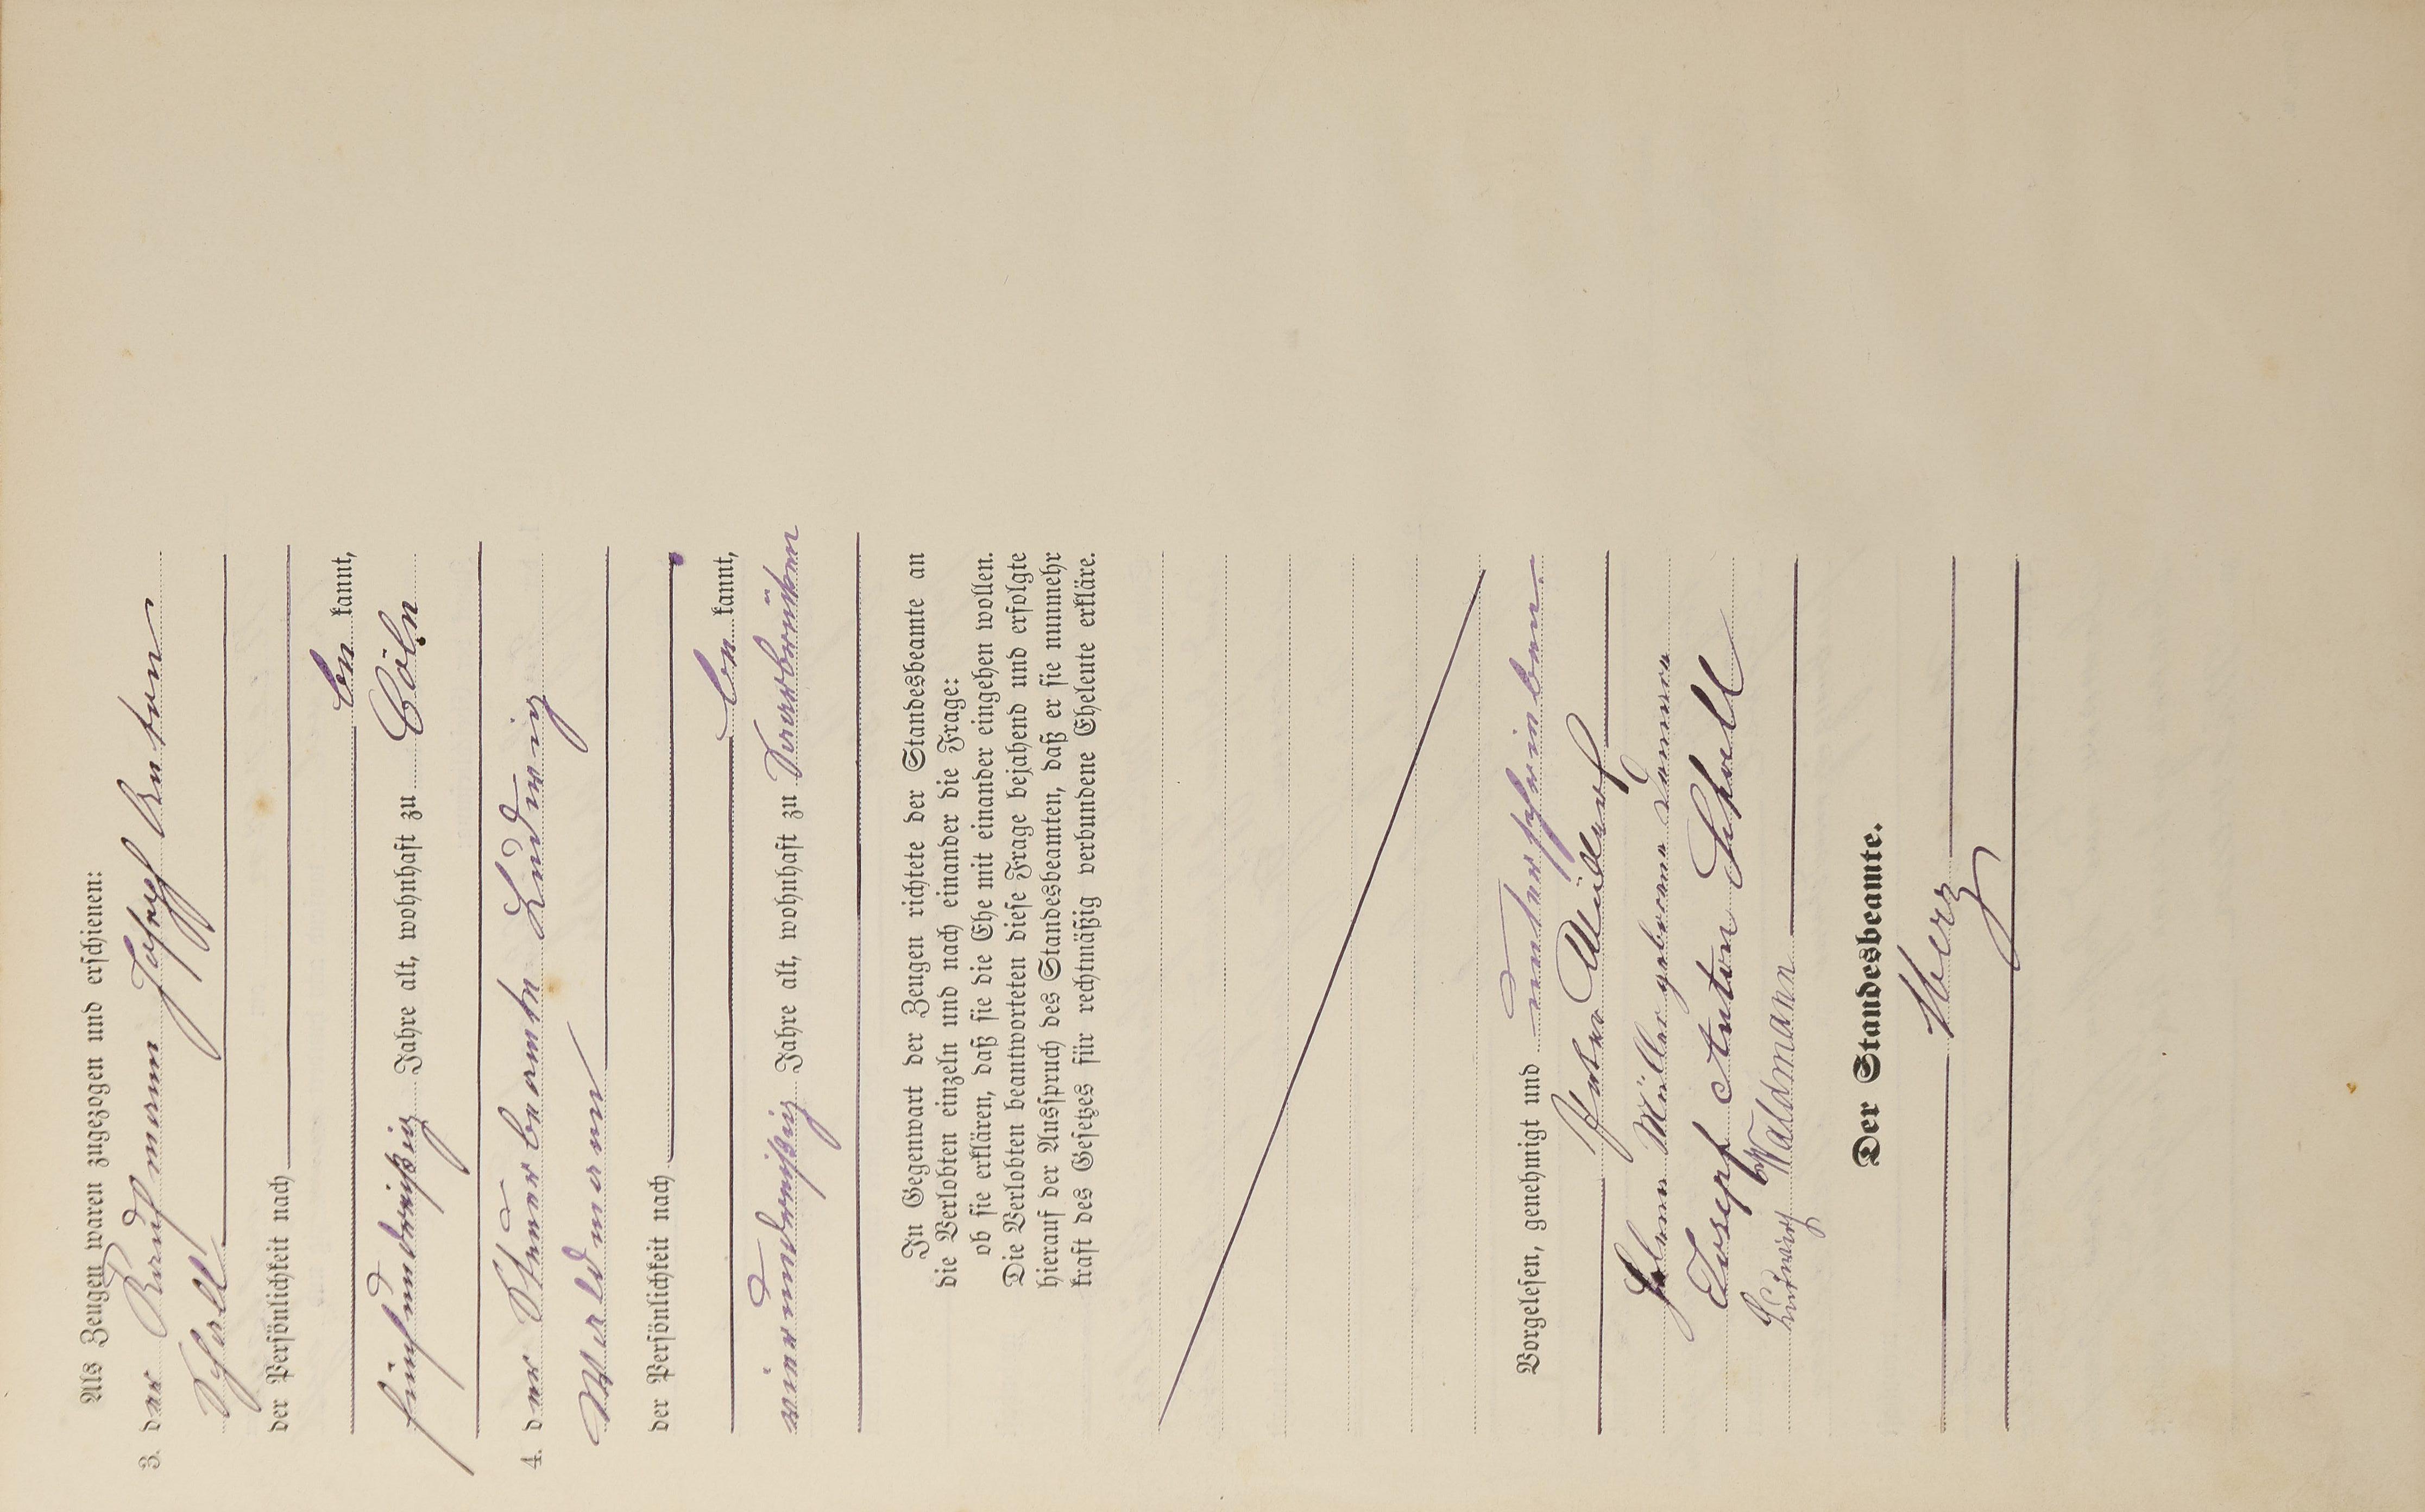 Als Zeugen waren zugezogen und erschienen:
3. der Kaufmann Joseph Anton
Schall
der Persönlichkeit nach
be kannt,
fünfunddreißig Jahre alt, wohnhaft zu Cöln
4. der Steuerbeamte Ludwig
Waldmann
der Persönlichkeit nach
be kannt,
vierunddreißig Jahre alt, wohnhaft zu Saarbrücken
In Gegenwart der Zeugen richtete der Standesbeamte an
die Verlobten einzeln und nach einander die Frage:
ob sie erklären, daß sie die Ehe mit einander eingehen wollen.
Die Verlobten beantworteten diese Frage bejahend und erfolgte
hierauf der Ausspruch des Standesbeamten, daß er sie nunmehr
kraft des Gesetzes für rechtmäßig verbundene Eheleute erkläre.
Vorgelesen, genehmigt und unterschrieben.
Peter
Müller geborene
Josef Anton Schall
Ludwig Waldmann
Der Standesbeamte.
Merz